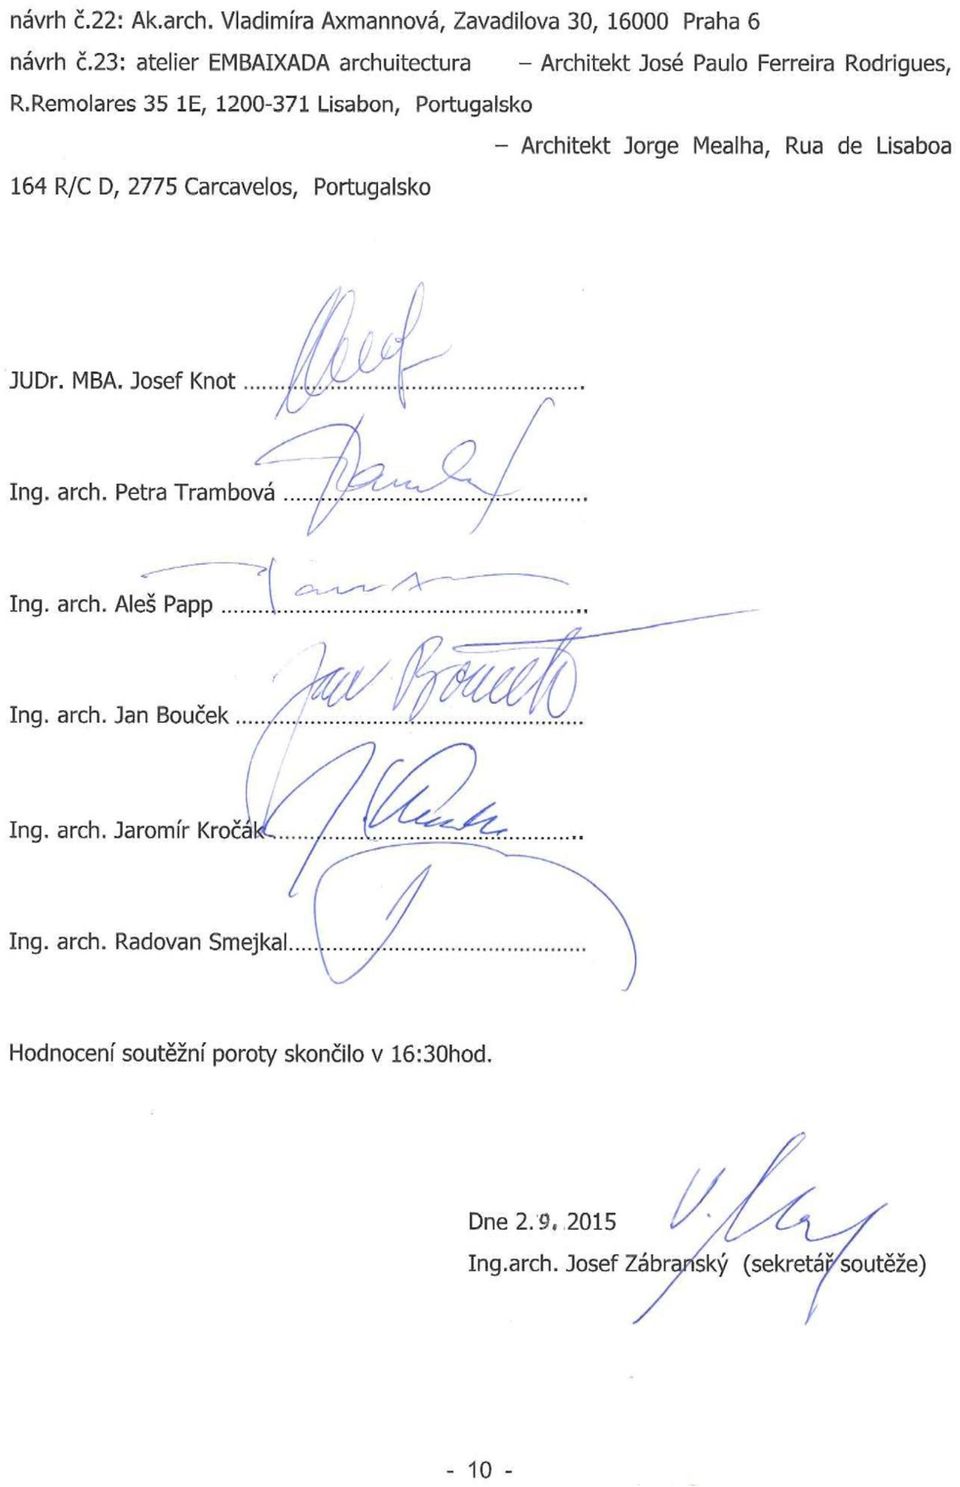 návrh č.22: Ak.arch. Vladimíra Axmannová, Zavadilova 30, 16000 Praha 6
návrh č.23: atelier EMBAIXADA archuitectura – Architekt José Paulo Ferreira Rodrigues,
R.Remolares 35 1E, 1200-371 Lisabon, Portugalsko
– Architekt Jorge Mealha, Rua de Lisaboa
164 R/C D, 2775 Carcavelos, Portugalsko
JUDr. MBA. Josef Knot
Ing. arch. Petra Trambová
Ing. arch. Aleš Papp
Ing. arch. Jan Bouček
Jan Bouček
Ing. arch. Jaromír Kročák
Ing. arch. Radovan Smejkal
Hodnocení soutěžní poroty skončilo v 16:30hod.
Dne 2.9. 2015
Ing.arch. Josef Zábranský (sekretář soutěže)
- 10 -